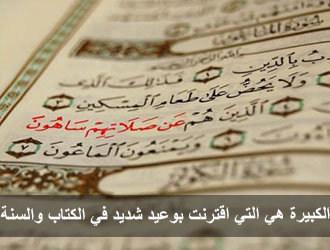 بُ بِالدِّينِ ١ فَذَٰلِكَ الَّذِي
وَلَا يَحُضُّ عَلَىٰ طَعَامِ الْمِسْكِينِ ٣
الَّذِينَ هُمْ عَن صَلَاتِهِمْ سَاهُونَ
وَيَمْنَعُونَ الْمَاعُونَ ٧
الكبيرة هي التي اقترنت بوعيد شديد في الكتاب والسنة